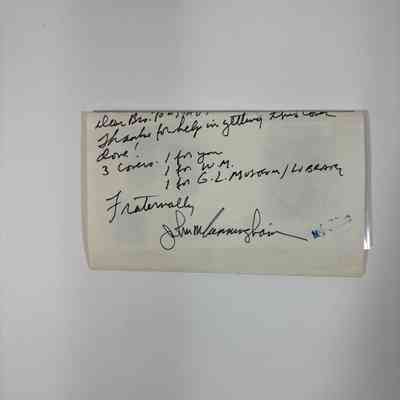 Dear Bro.
Thanks for help in getting this one
done!
3 Covers. 1 for you
1 for W.M.
1 for G.L. MUSEUM/LIBRARY
Fraternally
John M Cunningham